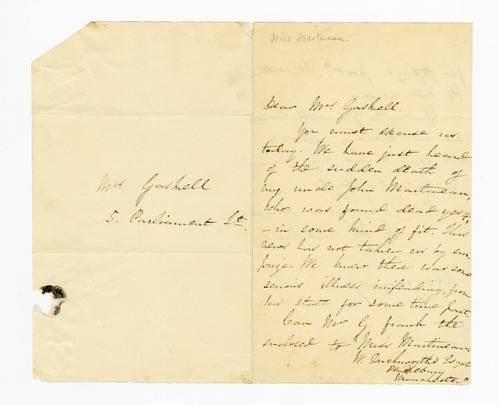 Mrs Gaskell
5. Parliament St.
Miss Martineau.
Dear Mrs Gaskell.
You must excuse us
today. We have just heard
of the sudden death of
my uncle John Martineau,
who was found dead yesy,
- in some kind of fit. This
news has not taken us by sur
prize. We knew there was some
serious illness impending, from
his state for some time past.
Can Mr G. frank the
enclosed to "Miss Martineau
W. Duckworth's Esqre
Pendlebury
Manchester"